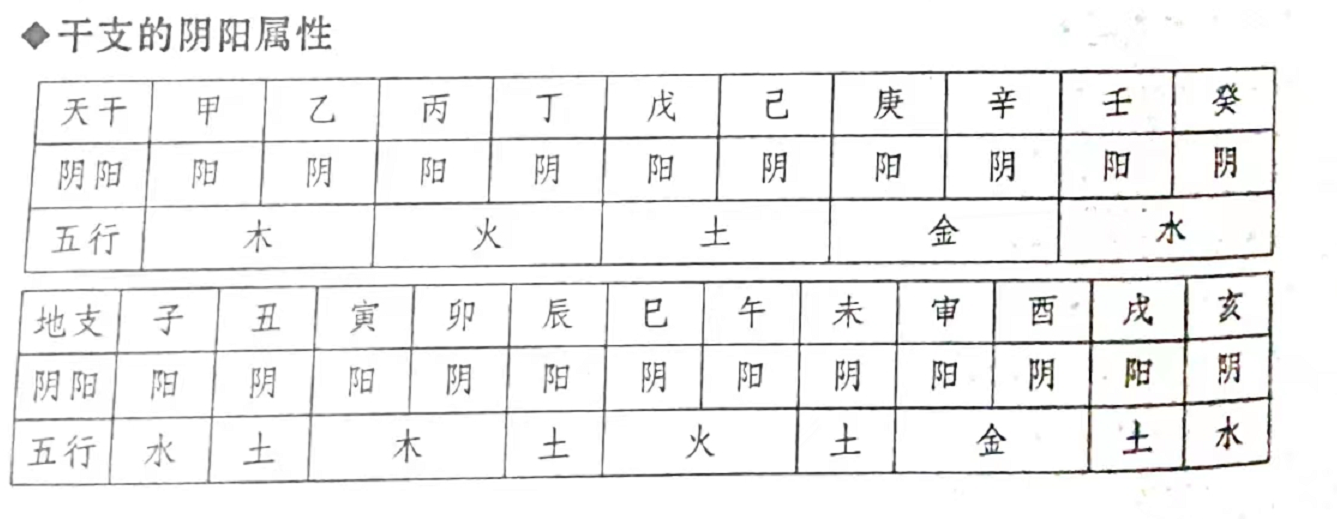 ◆干支的阴阳属性
天干 甲 乙 丙 丁 戊 己 庚 辛 壬 癸
阴阳 阳 阴 阳 阴 阳 阴 阳 阴 阳 阴
五行 木 火 土 金 水
地支 子 丑 寅 卯 辰 巳 午 未 审 酉 戌 亥
阴阳 阳 阴 阳 阴 阳 阴 阳 阴 阳 阴 阳 阴
五行 水 土 木 土 火 土 金 土 水